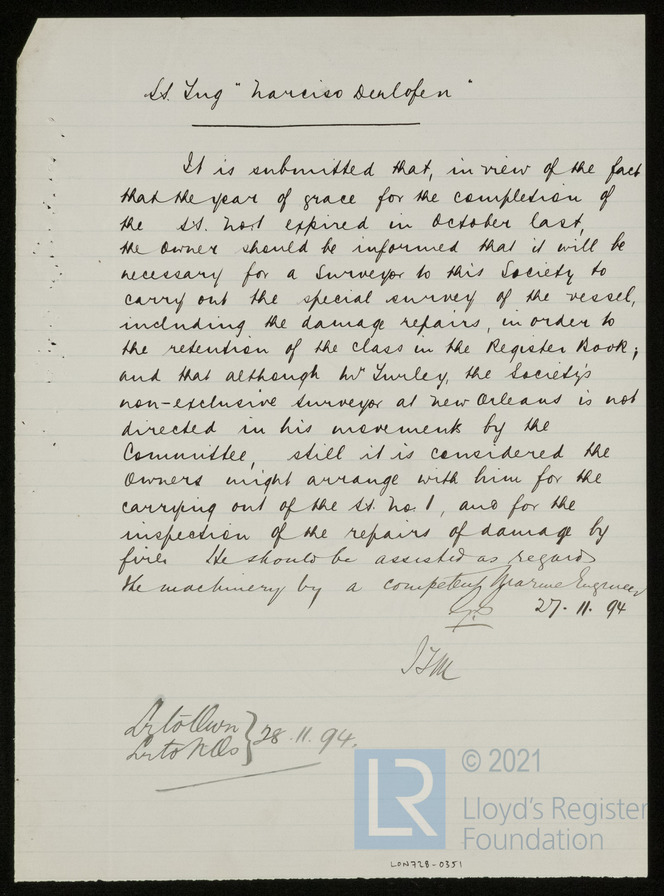 St. Tug "Narciso Deulofeu"
It is submitted that, in view of the fact
that the year of grace for the completion of
the S.S. No. 1 expired in October last,
the Owner should be informed that it will be
necessary for a Surveyor to this Society to
carry out the special survey of the vessel,
including the damage repairs, in order to
the retention of the class in the Register Book;
and that although Mr Turley, the Society's
non-exclusive Surveyor at New Orleans is not
directed in his movements by the
Committee, still it is considered the
Owners might arrange with him for the
carrying out of the S.S. No. 1, and for the
inspection of the repairs of damage by
fire. He should be assisted as regards
the machinery by a competent Marine Engineer
27. 11. 94
Lr to Own } 28. 11. 94.
Lr to N Os
LR
© 2021
Lloyd's Register
Foundation
LON728-0351